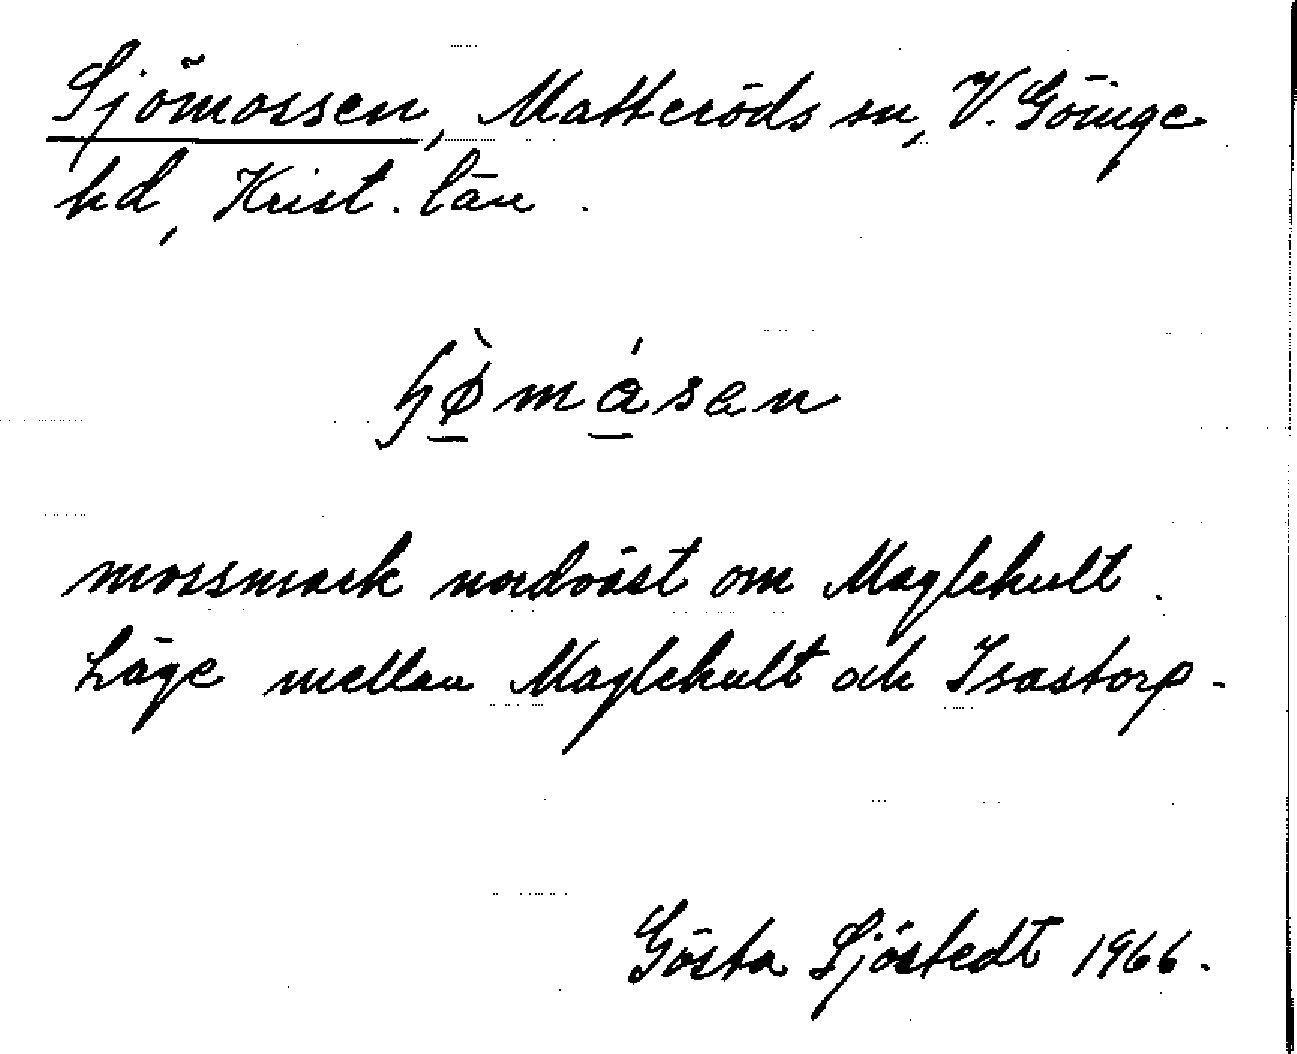 Sjömossen, Matteröds sn, V. Göinge
hd, Krist. län.
mossmark nordväst om Maglehult.
Läge mellan Maglehult och Isastorp.
Gösta Sjöstedt 1966.